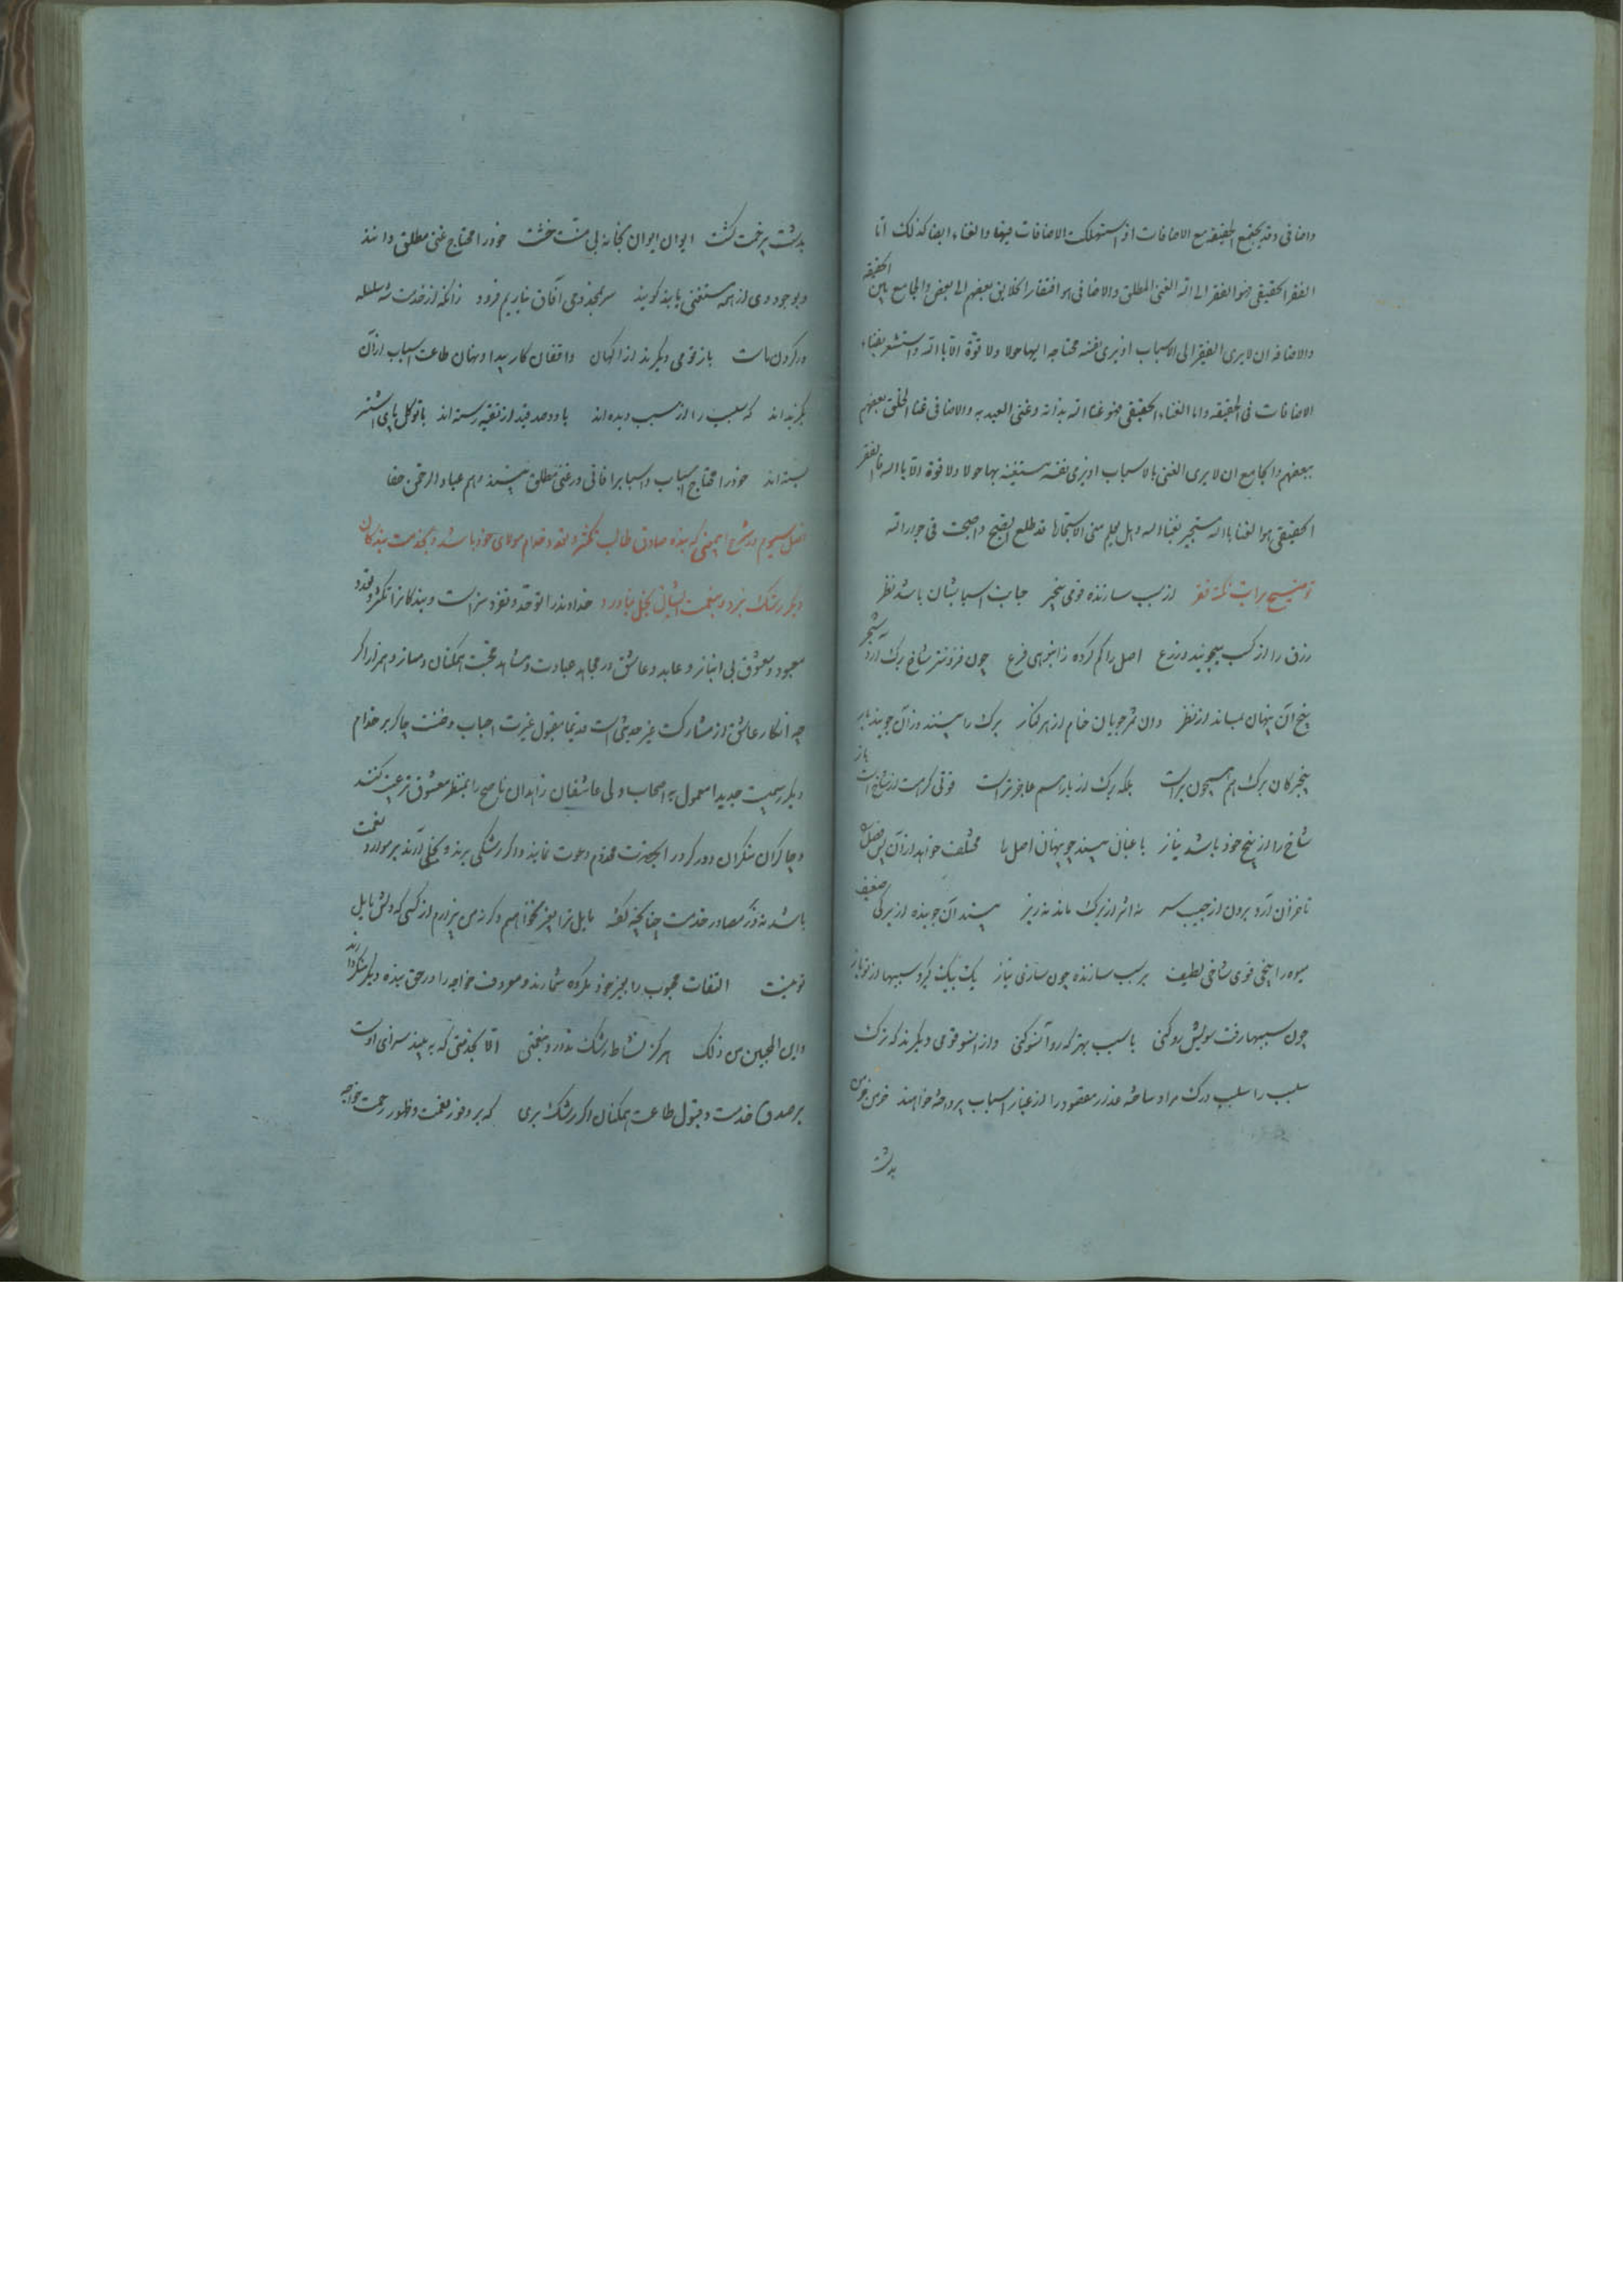 واضافی وقد یجتمع الحقیقه مع الاضافات اذ استهلکت الاضافات فیها والغناء ایضا کذلک اما
الفقر الحقیقی فهو الفقر الی الله الغنی المطلق والاضافی هو افتقار الخلایق بعضهم الی بعض والجامع بین الحقیقه
والاضافه ان لا یری الفقر الی الاسباب او یری نفسه محتاجه الیها حولا ولا قوة الا بالله واستشعر بفناء
الاضافات فی الحقیقه واما الغناء الحقیقی فهو غنا الله بذاته وغنی العبد به والاضافی غنا الخلق بعضهم
ببعضهم والجامع ان لا یری الغنی بالاسباب او یری نفسه مستغنیه بها حولا ولا قوة الا بالله فالفقر
الحقیقی هو الغنا بالله مستجیر بغناء الله وهل لی معنی الا قد طلع الصبح واصبحت فی جوار الله
توضیح مراتب نکته نغز از سبب سازنده قومی بیخبر حجاب اسبابشان باشد نظر
رزق را از کسب میجویند وزرع اصل را گم کرده ز انبوهی فرع چون فزونتر شاخ برگ آرد شجر
بیخ آن پنهان بماند از نظر وان ثمرجویان خام از هر کنار برگ را بینند وزآن جویند بار
بیخبر کان برگ هم همچون بر است بلکه برگ از بار هم عاجزتر است قوتی گر هست از شاخ است باز
شاخ را از بیخ خود باشد نیاز باغبان بیند چو پنهان اصل را مختلف خواهد از آن پس فصل را
تا خزان آرد برون از جیب سر نه اثر از برگ ماند نه زبر بیند آن جوینده از برگی ضعیف
میوه را بیخی قوی شاخی لطیف بر سبب سازنده چون سازی نیاز یک بیک گیرد سببها از تو باز
چون سببها رفت سویش رو کنی با سبب بهتر که رو آنسو کنی واز اینسو قومی دیگرند که ترک
سبب را سبب درک مراد ساخته عذر مقصود را از غبار اسباب پرداخته خواهند خرمن خرمن
بدشت
بدشت پرخت کشت ایوان ایوان بخانه بی مشت خشت خود را محتاج غنی مطلق دانند
وبوجود وی از همه مستغنی یابند گویند سر بمجذوعی آفاق نیاریم فرود زانکه از خدمت شه سلسله
در گردن ماست باز قومی دیگرند از آگهان واقفان کار پیدا ونهان طاعت اسباب از آن
بگزیده اند که سبب را از مسبب دیده اند با دو صد قید از تقیه رسته اند با توکل پای اشتر
بسته اند خود را محتاج اسباب واسباب را فانی در غنی مطلق بینند وهم عباد الرحمن حقا
فصل سیوم در شرح اینمعنی که بنده صادق طالب تکثر وتعدد خدام مولای خود باشد وبخدمت بندگان
دیگر رشک نبرد وبنعمت ایشان بخل نیاورد خداوند را توحد وتفرد سزاست وبندگانرا تکثر وتعدد
معبود ومعشوق بی انباز وعابد وعاشق در مجاهد عبادت ومشاهد محبت همگنان دمساز وهمراز اگر
چه انکار عاشق از مشارکت غیر حدیثی است قدیما مقبول غیرت احباب وضنت چاکر بر خدام
دیگر رسمیست جدیدا معمول به اصحاب ولی عاشقان زاهدان ناصح را بمنظر معشوق ترغیب کنند
وچاکران منکران دور گرد را بحضرت مخدوم دعوت نمایند واگر رشکی برند وبخلی آرند بر موارد نعمت
باشد نه در مصادر خدمت چنانچه گفته مایل ترا بغیر نخواهم وگرنه من بیزارم از کسی که دلش مایل
تو نیست التفات محبوب را بجز خود مکروه شمارند ومعروف خواجه را در حق بنده دیگر منکر دارند
واین المحبین من ذلک هرگز نشاط رشک ندارد بنعمتی الا بخدمتی که به بیند سزای اوست
بر صدق خدمت وقبول طاعت همگنان اگر رشک بری که بر وفور نعمت وظهور رحمت خواجه